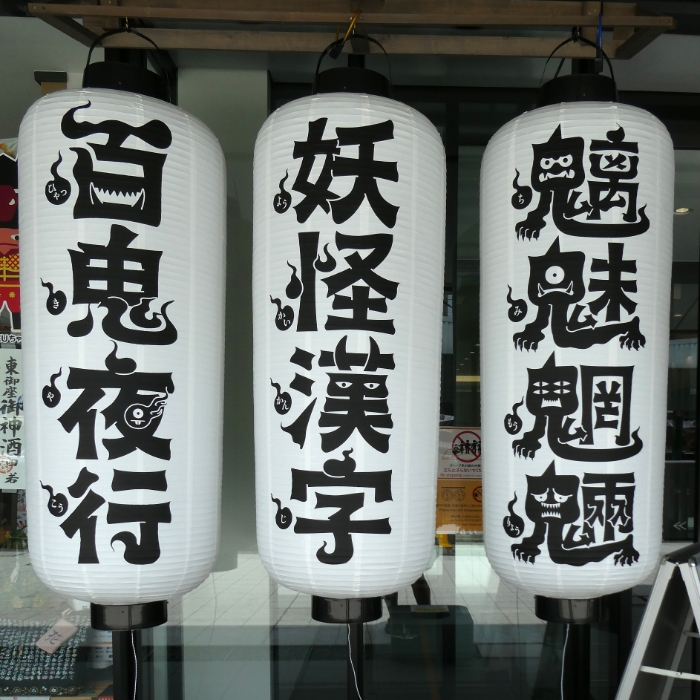 百鬼夜行
ひゃっ
き
や
こう
妖怪漢字
よう
かい
かん
じ
魑魅魍魎
ち
み
もう
りょう
東御座
御神酒
花